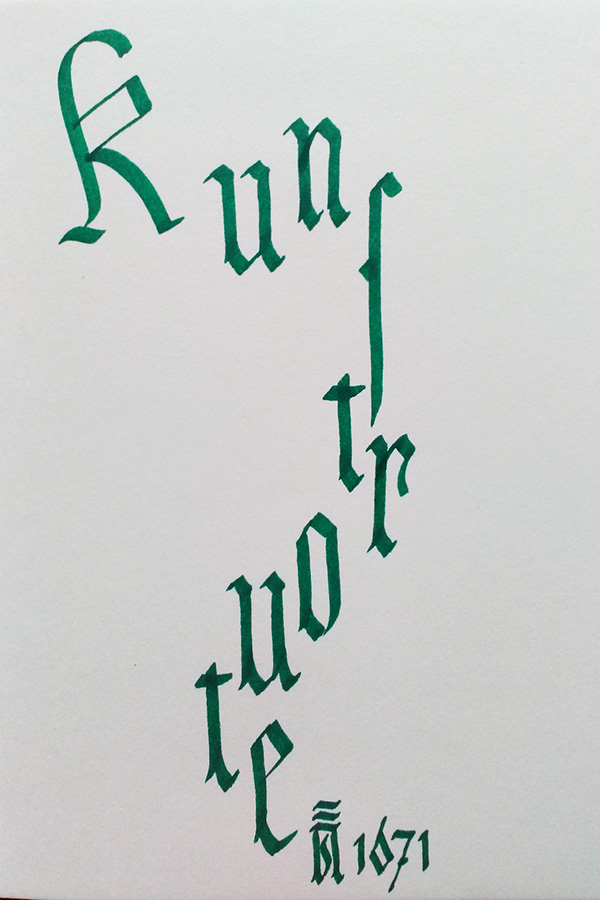 Kunſtroute
1671